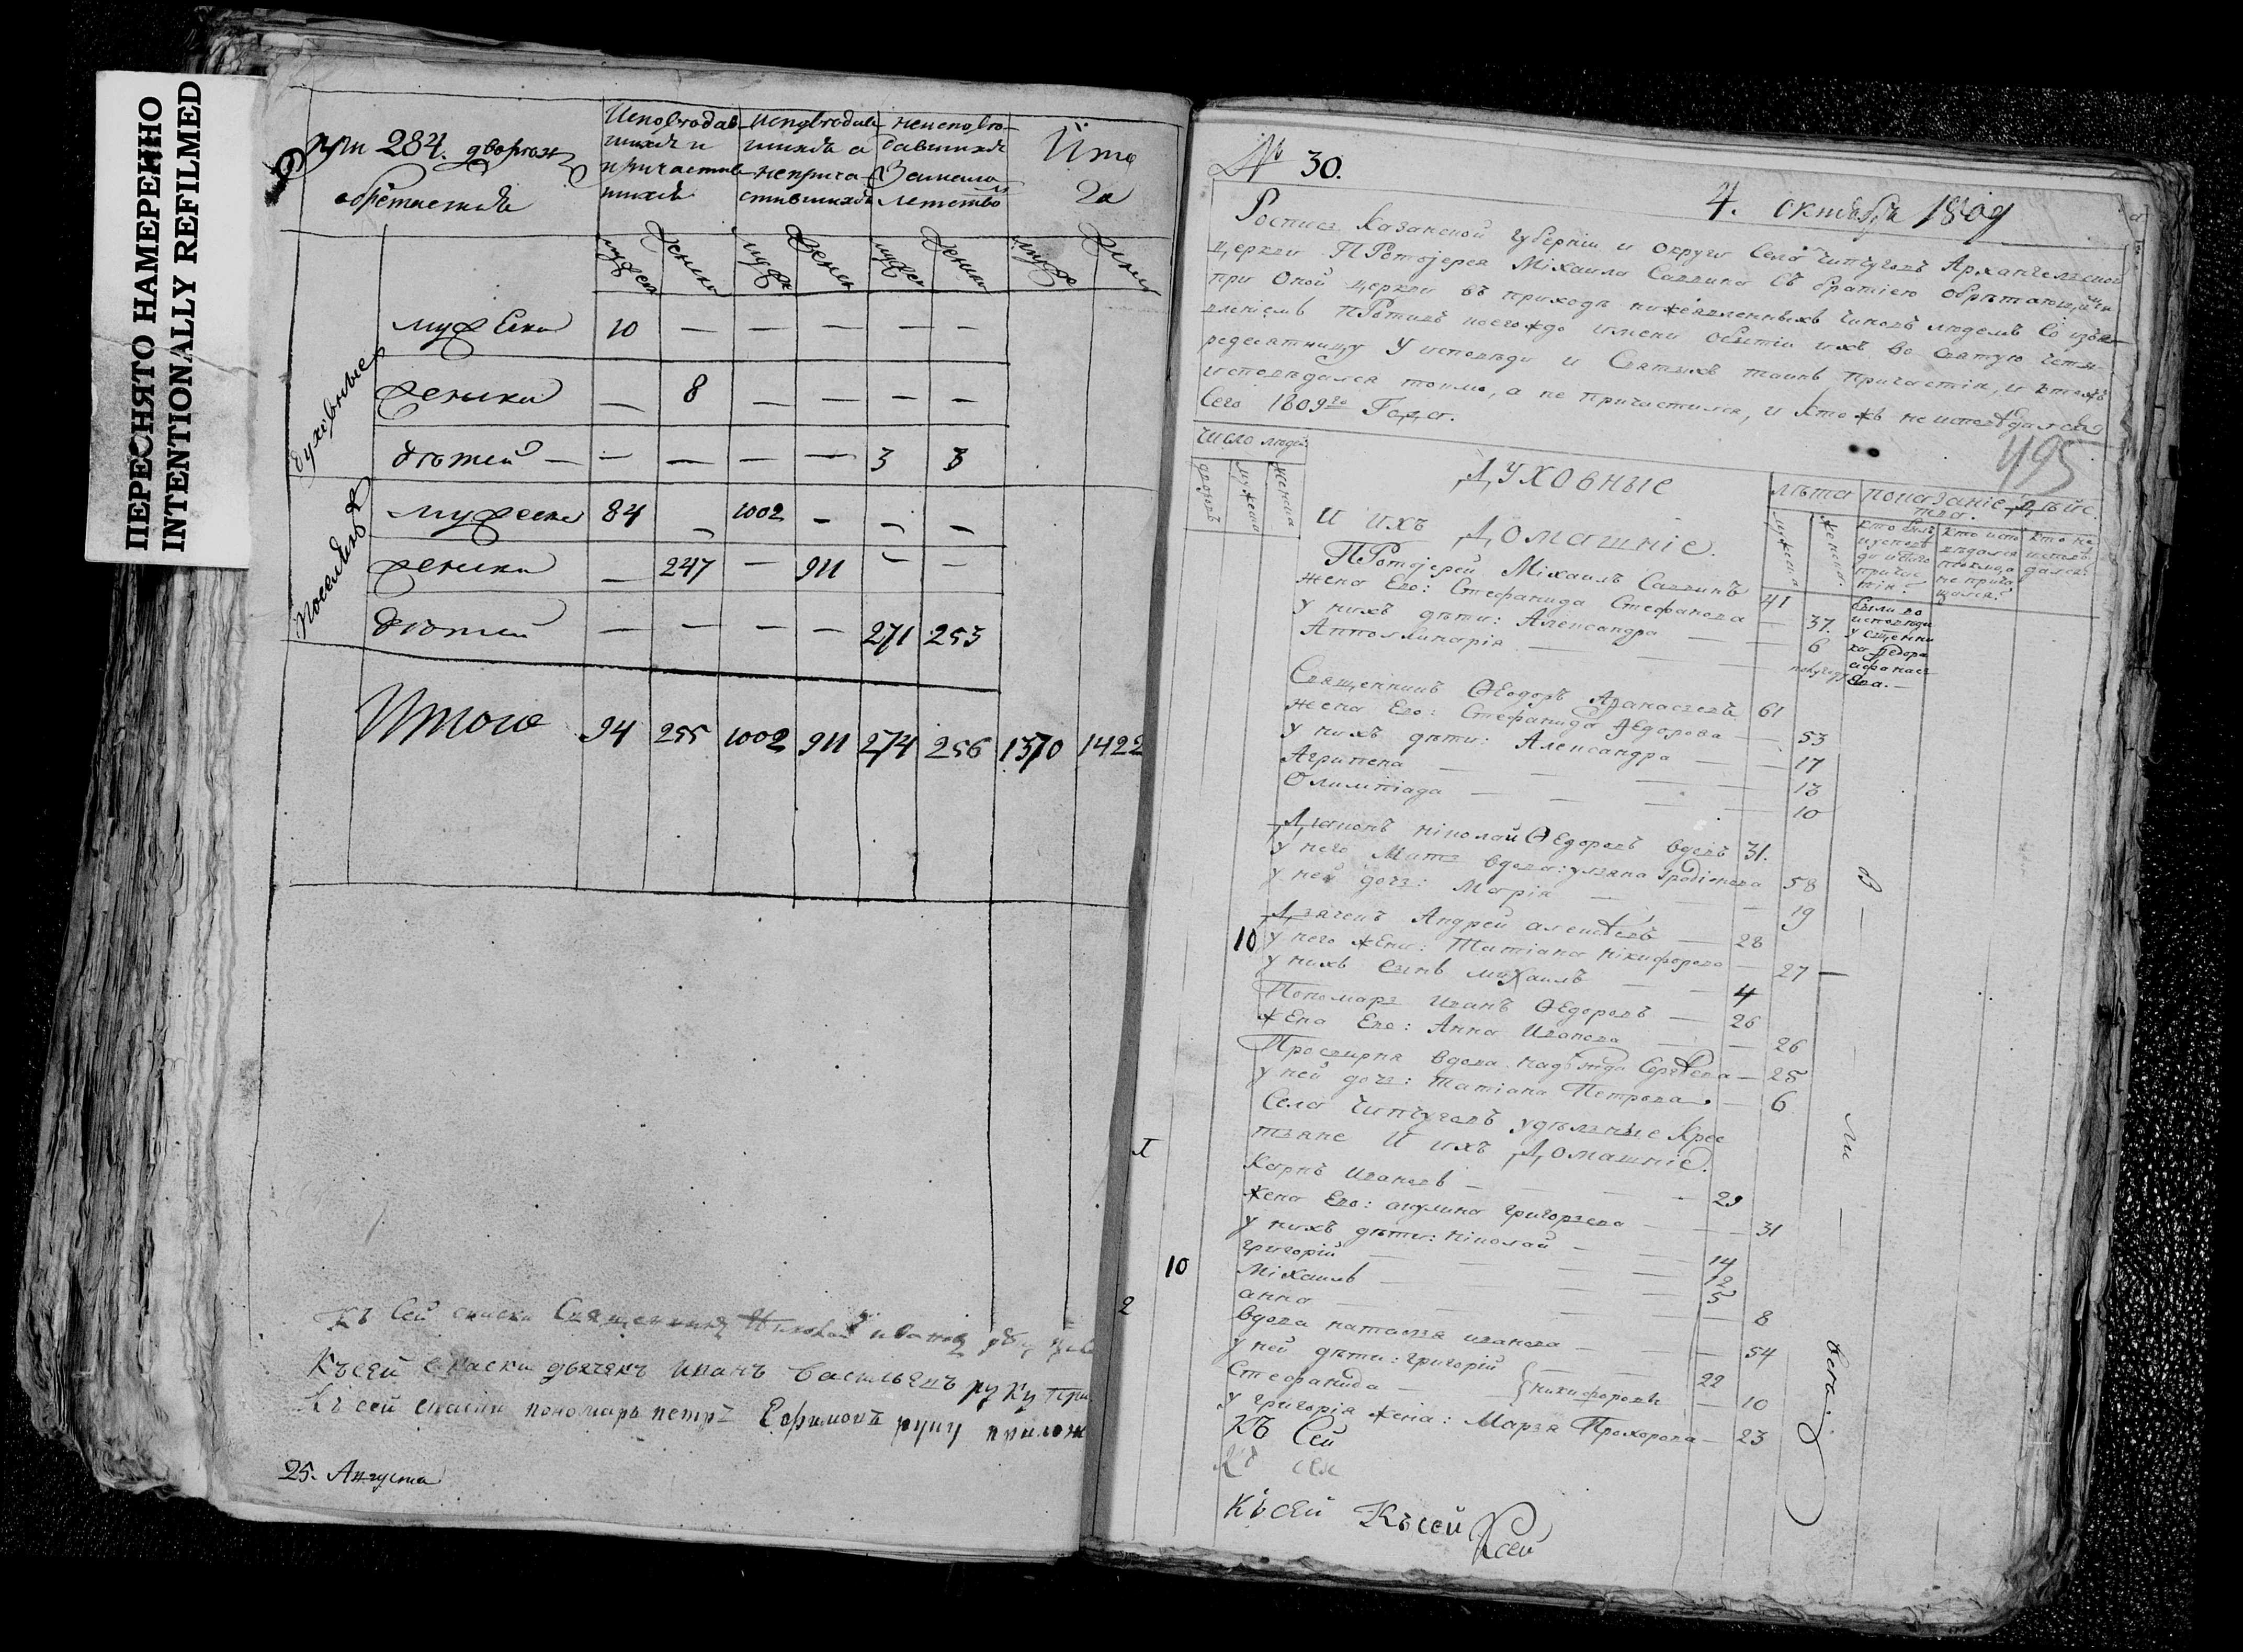 ПЕРЕСНЯТО НАМЕРЕННО
INTENTIONALLY REFILMED
при 284. дворахъ
обретается
Исповедав-
шихся и
причастив-
шихся
Исповедав-
шихся а
неприча-
стившихся
неиспове-
давшихся
За мало
летство
Ито
га
мужеска
женска
мужеска
женска
мужеска
женска
мужеска
женска
Духовные
мужеска 10 — — — — —
женска — 8 — — — —
детей — — — — — 3 3
Поселянъ
мужеска 84 — 1002 — — —
женска — 247 — 911 — —
детей — — — — 271 253
Итого 94 255 1002 911 274 256 1370 1422
Къ Сей списки Священникъ
Къ сей списки дьячекъ Иванъ Васильевъ руку при
Къ сей списки пономарь петръ Ефимовъ руку прилож
25. Августа
№ 30.
4. октября 1809
Роспись Казанской губерніи и округи Села Чипчуговъ Архангельской
церкви ПРотоіерея Міхаила Саввина съ братіею обрѣтающимся
при оной церкви въ приходѣ нижеявленныхъ чиновъ людемъ Со изъя-
вленіемъ ПРотивъ коегождо имени обытіи ихъ во святую четы-
редесятницу У исповѣди и Святыхъ таинъ причастія, и ктожъ
исповѣдался токмо, а не причастился, и ктожъ не исповѣдался
Сего 1809го Года.
495
число людей
дворовъ
мужеска
женска
Духовные
И ихъ Домашніе.
лѣта
показаніе дѣйс.
тва.
мужеска
женска
кто былъ
у исповѣ
ди и св.
причас
тія.
кто испо
вѣдался
токмо, а
не прича
щался.
кто не
исповѣ
дался.
ПРотоіерей Міхаилъ Саввинъ 41
жена Его: Стефанида Стефанова — 37.
у нихъ дѣти: Александра — 6
Апполлинарія — полугоду
были во
исповѣди
у священни
ка Федора
Афанась
ева. —
Священникъ Ѳеодоръ Афанасьевъ 61
жена Его: Стефанида Ѳедорова — 53
у нихъ дѣти: Александра — 17
Агрипена — 13
Олимпіада — 10
Діаконъ Ніколай Ѳедоровъ вдовъ 31.
у него Мать вдова: ульяна Іродіонова 58
у ней дочь: Марія — 19
Дьячекъ Андрей алексѣевъ — 28
10 у него жена: Татіана Нікифорова — 27 —
у нихъ сынъ михаилъ — 4
Пономарь Иванъ Ѳедоровъ — 26
жена Его: Анна Иванова — 26
Просвирня вдова надѣжда Сергѣева — 25
у ней дочь: Татіана Петрова — 6
Села Чипчуговъ удѣльные Крес
тьяне И ихъ Домашніе.
Карпъ Ивановъ — 29
жена Его: акулина григорьева — 31
у нихъ дѣти: Ніколай — 14
григорій — 12
10 Міхаилъ — 5
анна — 8
2 вдова наталья иванова — 54
у ней дѣти: григорій — 22
Стефанида — никифоровы — 10
у григорія жена: Марья Прохорова — 23
Къ Сей
Къ сей
Къ сей Къ сей
Ксей